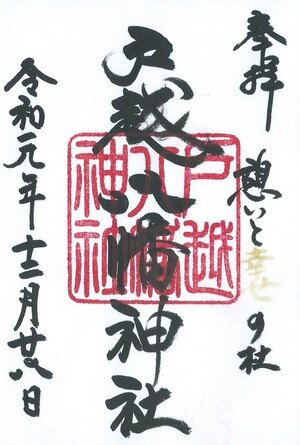 奉拝 憩いと幸せの社
戸越八幡神社
戸越
八幡
神社
令和元年十二月廿八日